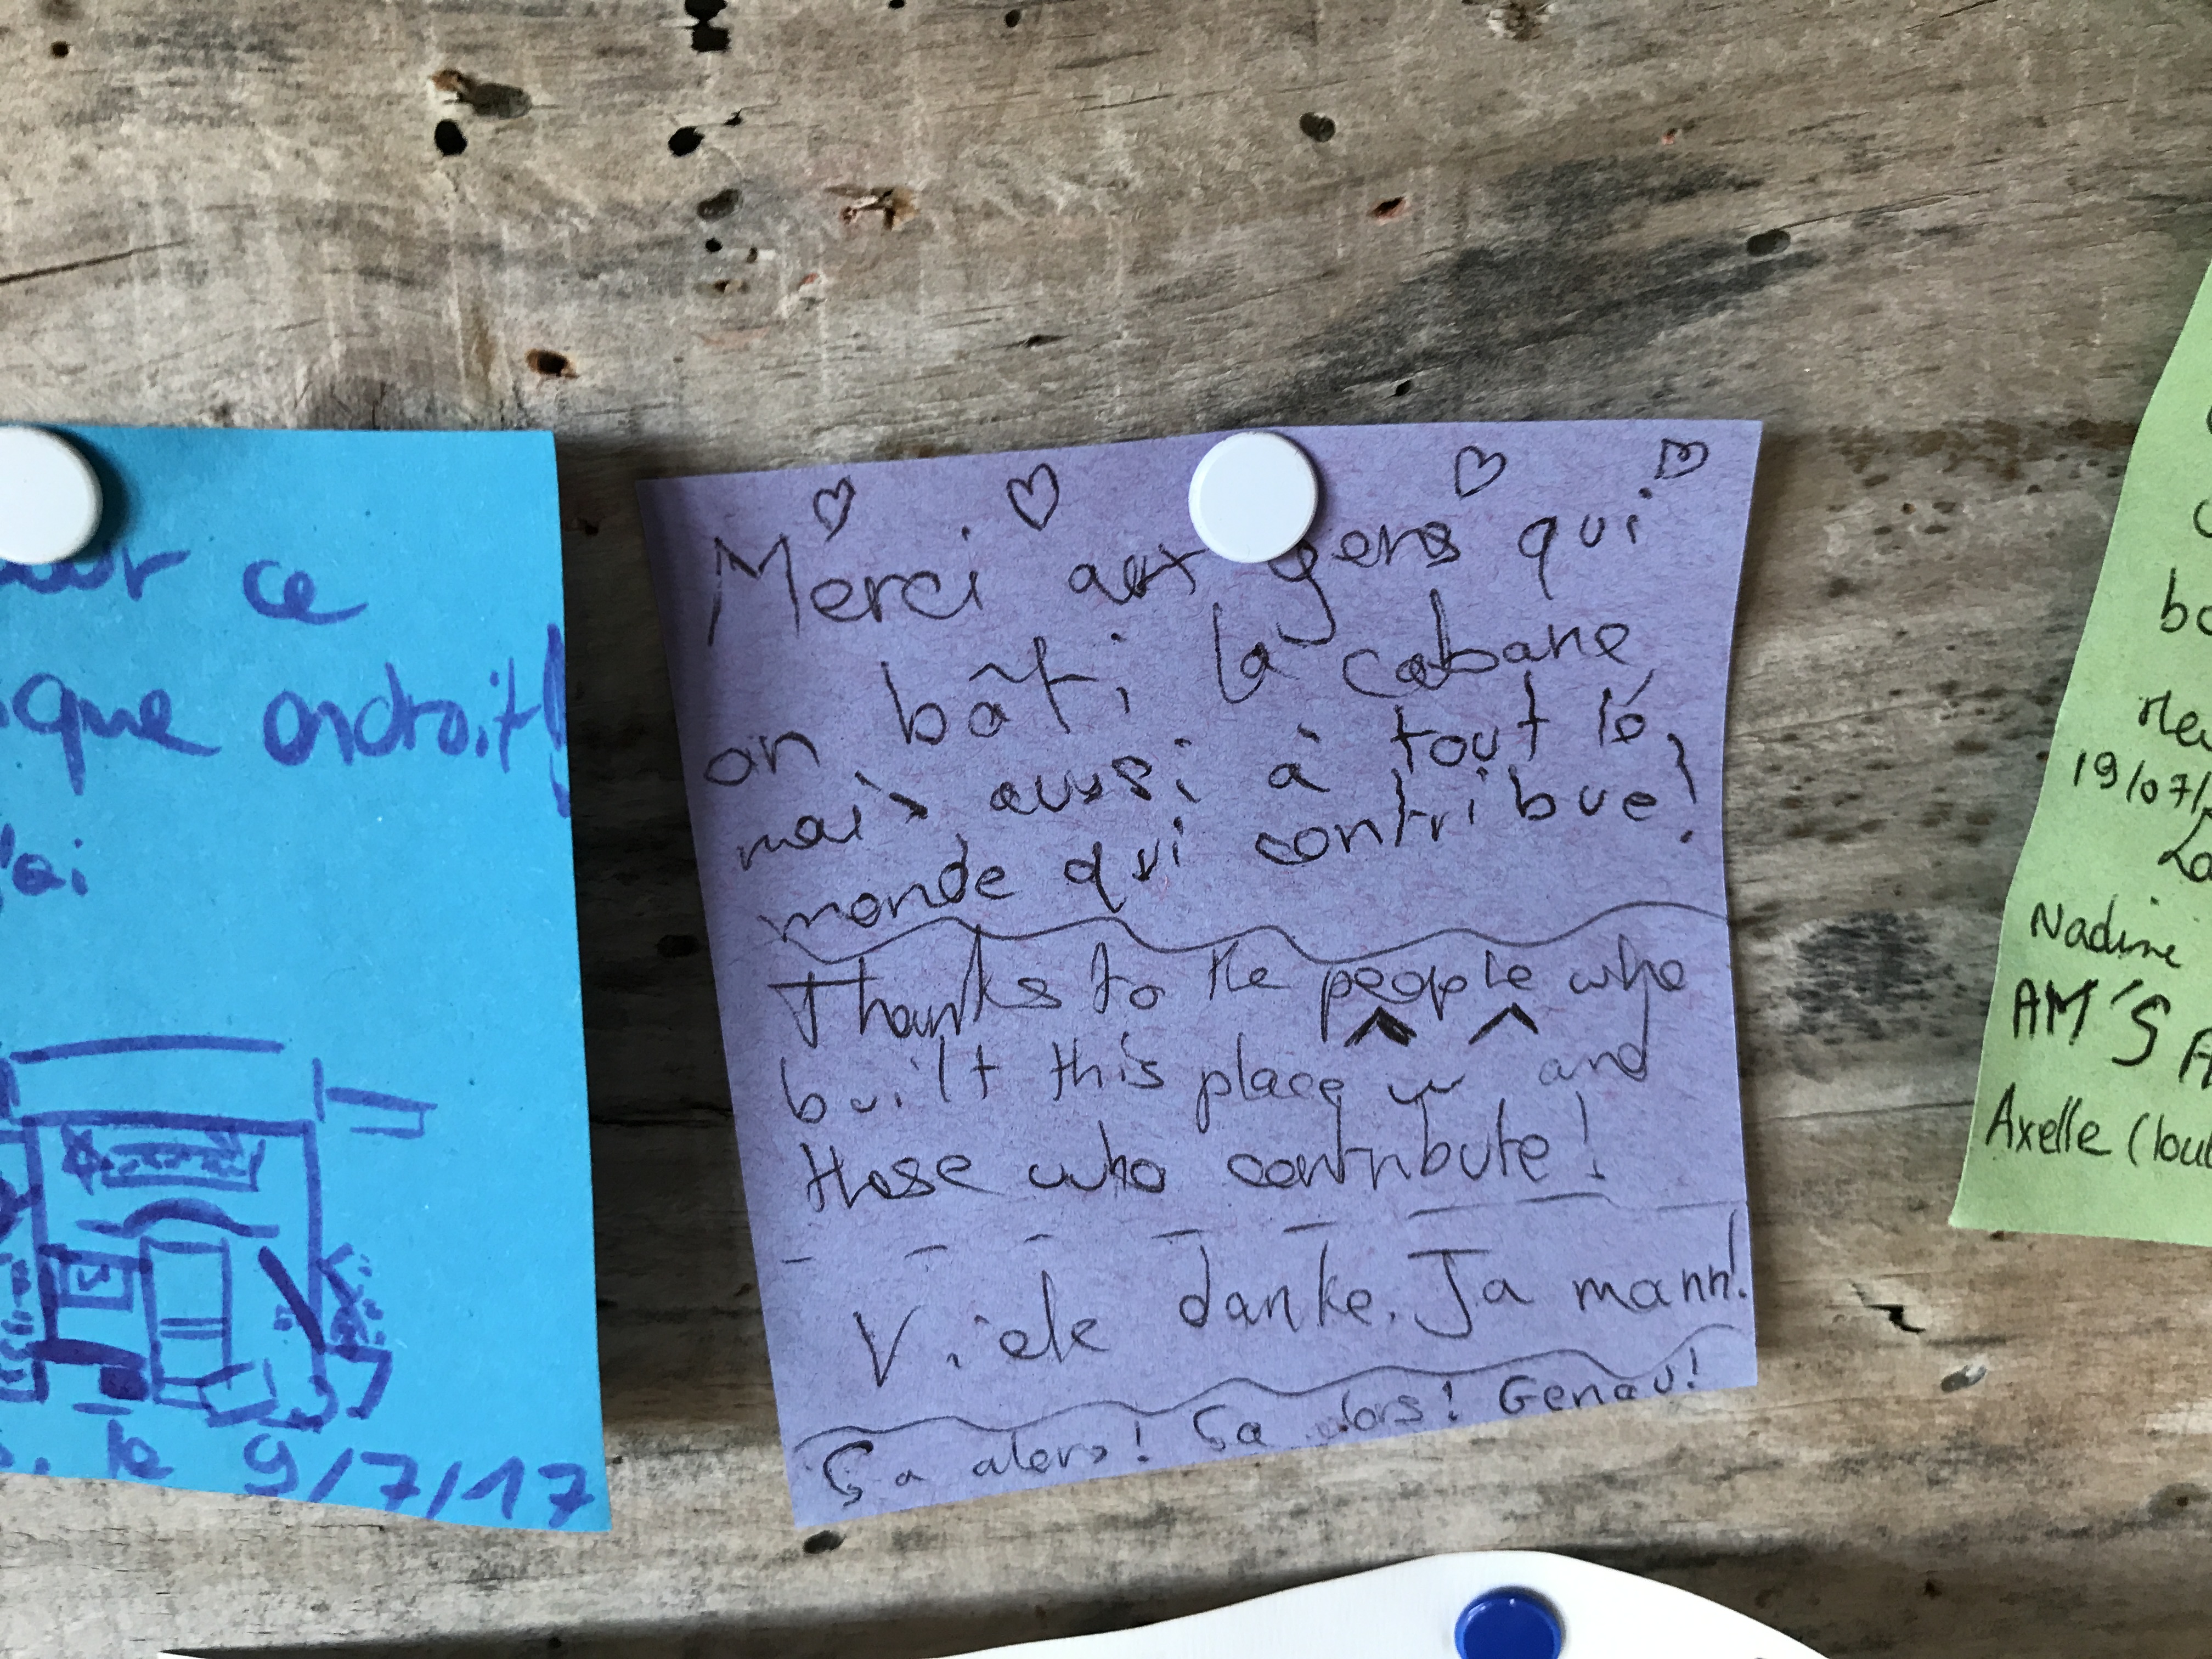 ce
que endroit!
'ai
le 9/7/17
Merci aux gens qui
on bâti la cabane
mais aussi à tout lé
monde qui contribue!
Thanks to the people who
built this place and
those who contribute!
Viele danke. Ja mann!
Ça alors! Ça alors! Genau!
19/07/
Nadine
AM'S
Axelle (lou